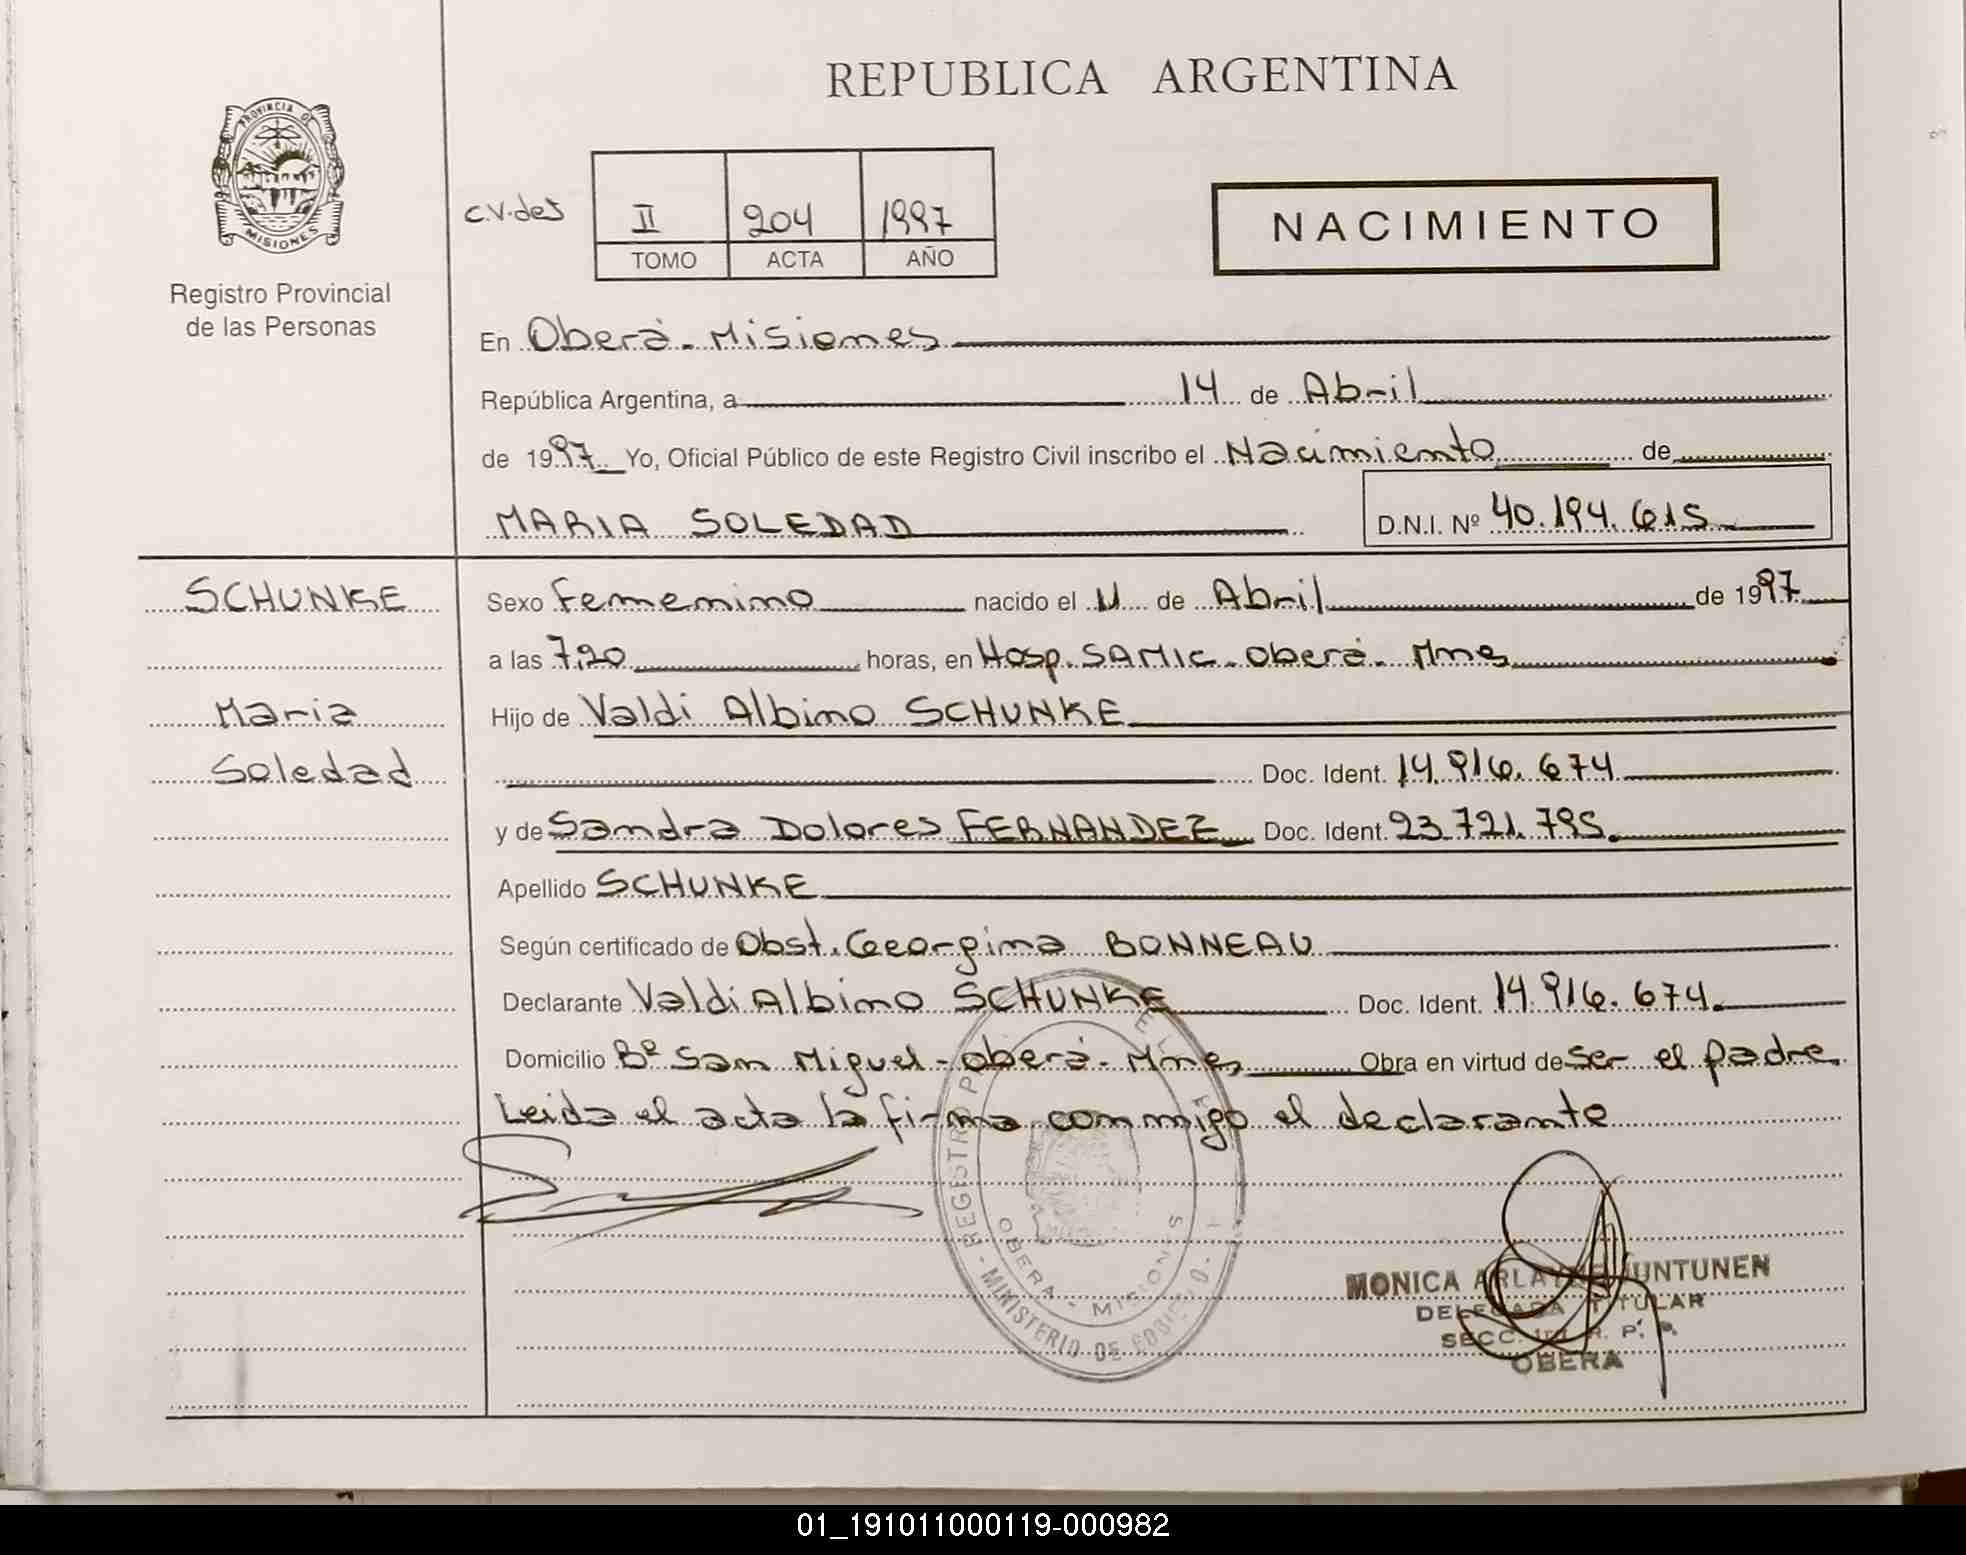 REPUBLICA ARGENTINA
PROVINCIA DE
MISIONES
Registro Provincial
de las Personas
c.v.des
II 204 1997
TOMO ACTA AÑO
NACIMIENTO
En Oberá - Misiones
República Argentina, a 14 de Abril
de 1997 Yo, Oficial Público de este Registro Civil inscribo el Nacimiento de
MARIA SOLEDAD D.N.I. Nº 40.194.615
SCHUNKE
Maria
Soledad
Sexo Femenino nacido el 11 de Abril de 1997
a las 7,20 horas, en Hosp. SAMIC - Oberá - Mnes
Hijo de Valdi Albino SCHUNKE
Doc. Ident. 14.916.674
y de Sandra Dolores FERNANDEZ Doc. Ident. 23.721.795.
Apellido SCHUNKE
Según certificado de Obst. Georgina BONNEAU
Declarante Valdi Albino SCHUNKE Doc. Ident. 14.916.674.
Domicilio Bº San Miguel - Oberá - Mnes, Obra en virtud de ser el padre.
Leida el acta la firma conmigo el declarante
REGISTRO
OBERA - MISIONES
MINISTERIO DE GOBIERNO
MONICA JUNTUNEN
DELEGADA TITULAR
SECC. 1ra R. P. P.
OBERA
01_191011000119-000982